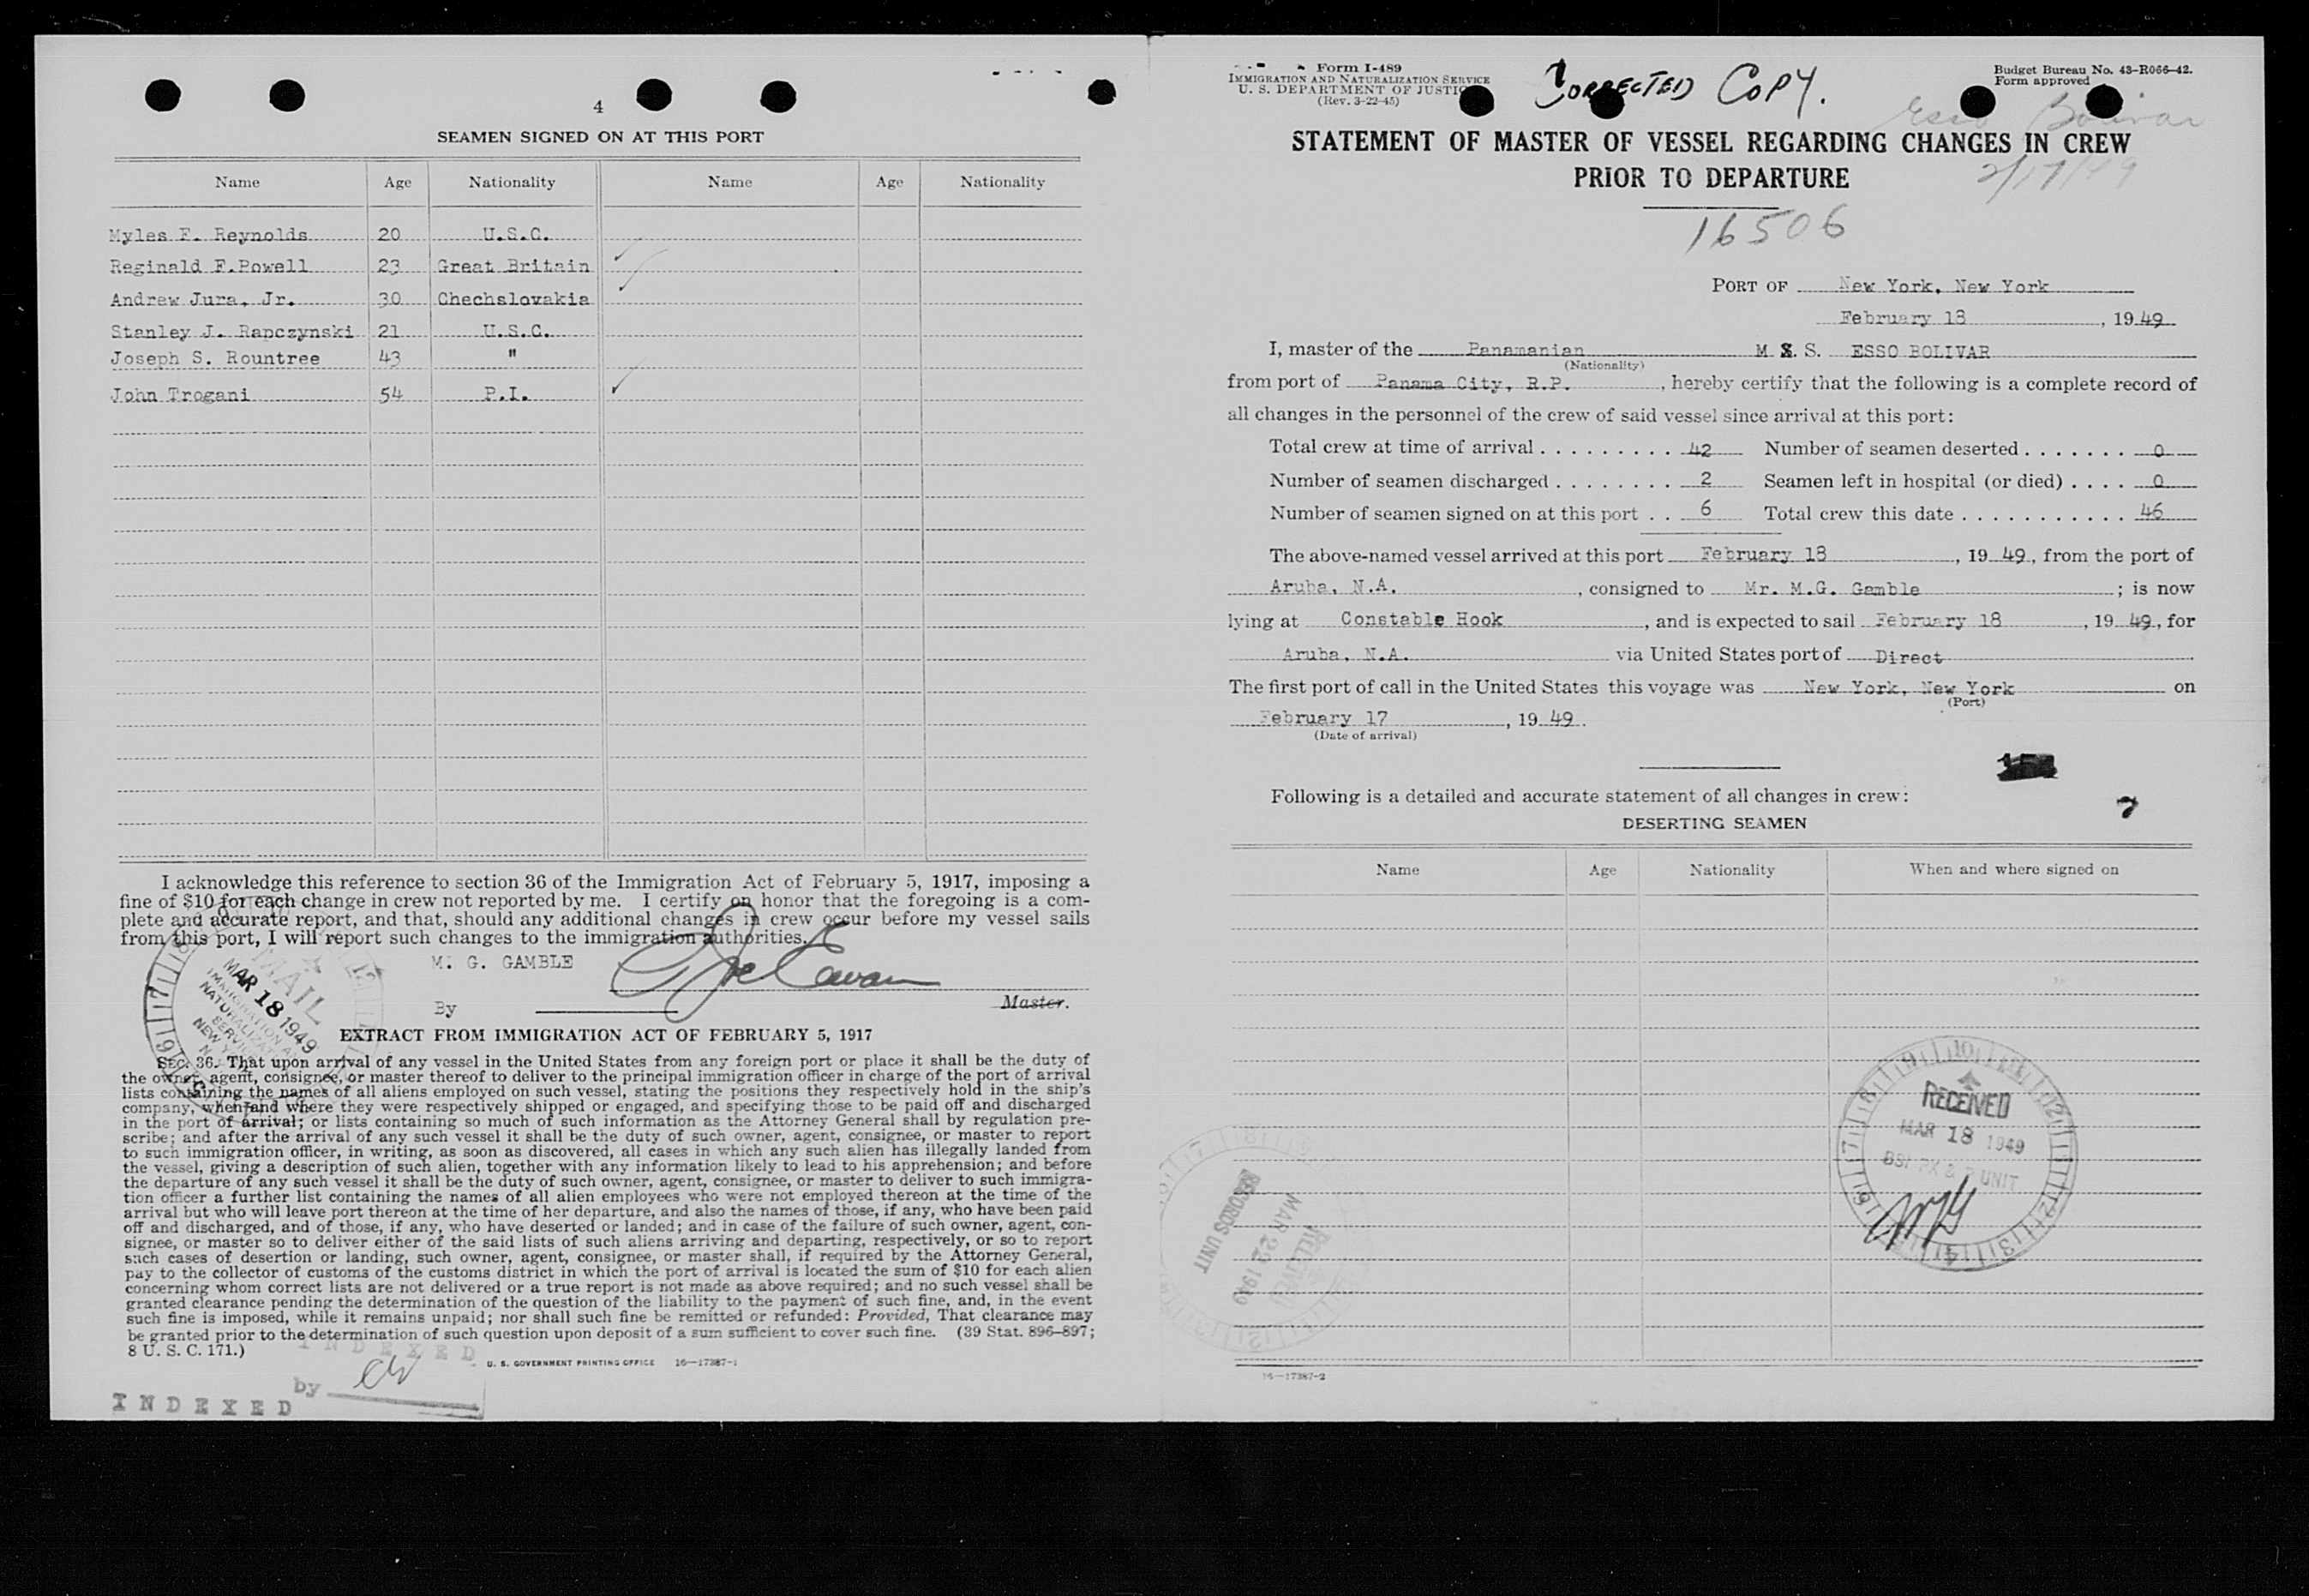 4
SEAMEN SIGNED ON AT THIS PORT
Name Age Nationality Name Age Nationality
Myles F. Reynolds 20 U.S.C.
Reginald F.Powell 23 Great Britain
Andrew Jura, Jr. 30 Chechslovakia
Stanley J. Rapczynski 21 U.S.C.
Joseph S. Rountree 43 "
John Trogani 54 P.I.
I acknowledge this reference to section 36 of the Immigration Act of February 5, 1917, imposing a
fine of $10 for each change in crew not reported by me. I certify on honor that the foregoing is a com-
plete and accurate report, and that, should any additional changes in crew occur before my vessel sails
from this port, I will report such changes to the immigration authorities.
M. G. GAMBLE
By Master.
MAIL
MAR 18 1949
IMMIGRATION
NATURALIZATION
SERVICE
NEW
EXTRACT FROM IMMIGRATION ACT OF FEBRUARY 5, 1917
SEC. 36. That upon arrival of any vessel in the United States from any foreign port or place it shall be the duty of
the owner, agent, consignee, or master thereof to deliver to the principal immigration officer in charge of the port of arrival
lists containing the names of all aliens employed on such vessel, stating the positions they respectively hold in the ship's
company, when and where they were respectively shipped or engaged, and specifying those to be paid off and discharged
in the port of arrival; or lists containing so much of such information as the Attorney General shall by regulation pre-
scribe; and after the arrival of any such vessel it shall be the duty of such owner, agent, consignee, or master to report
to such immigration officer, in writing, as soon as discovered, all cases in which any such alien has illegally landed from
the vessel, giving a description of such alien, together with any information likely to lead to his apprehension; and before
the departure of any such vessel it shall be the duty of such owner, agent, consignee, or master to deliver to such immigra-
tion officer a further list containing the names of all alien employees who were not employed thereon at the time of the
arrival but who will leave port thereon at the time of her departure, and also the names of those, if any, who have been paid
off and discharged, and of those, if any, who have deserted or landed; and in case of the failure of such owner, agent, con-
signee, or master so to deliver either of the said lists of such aliens arriving and departing, respectively, or so to report
such cases of desertion or landing, such owner, agent, consignee, or master shall, if required by the Attorney General,
pay to the collector of customs of the customs district in which the port of arrival is located the sum of $10 for each alien
concerning whom correct lists are not delivered or a true report is not made as above required; and no such vessel shall be
granted clearance pending the determination of the question of the liability to the payment of such fine, and, in the event
such fine is imposed, while it remains unpaid; nor shall such fine be remitted or refunded: Provided, That clearance may
be granted prior to the determination of such question upon deposit of a sum sufficient to cover such fine. (39 Stat. 896–897;
8 U. S. C. 171.)
INDEXED
U. S. GOVERNMENT PRINTING OFFICE 16—17387-1
by
INDEXED
Form I-489
IMMIGRATION AND NATURALIZATION SERVICE
U. S. DEPARTMENT OF JUSTICE
(Rev. 3-22-45)
CORRECTED COPY.
Budget Bureau No. 43-R066-42.
Form approved
Esso Bolivar
STATEMENT OF MASTER OF VESSEL REGARDING CHANGES IN CREW
PRIOR TO DEPARTURE
2/17/49
16506
PORT OF New York, New York
February 18, 1949
I, master of the Panamanian M S. S. ESSO BOLIVAR
(Nationality)
from port of Panama City, R.P., hereby certify that the following is a complete record of
all changes in the personnel of the crew of said vessel since arrival at this port:
Total crew at time of arrival . . . . . . . . . 42 Number of seamen deserted . . . . . . . 0
Number of seamen discharged . . . . . . . . 2 Seamen left in hospital (or died) . . . . 0
Number of seamen signed on at this port . . 6 Total crew this date . . . . . . . . . . . 46
The above-named vessel arrived at this port February 18, 1949, from the port of
Aruba, N.A., consigned to Mr. M.G. Gamble; is now
lying at Constable Hook, and is expected to sail February 18, 1949, for
Aruba, N.A. via United States port of Direct
The first port of call in the United States this voyage was New York, New York on
(Port)
February 17, 1949.
(Date of arrival)
Following is a detailed and accurate statement of all changes in crew:
7
DESERTING SEAMEN
Name Age Nationality When and where signed on
RECEIVED
MAR 18 1949
UNIT
RECORDS UNIT
MAR 22 1949
RECEIVED
16—17387-2